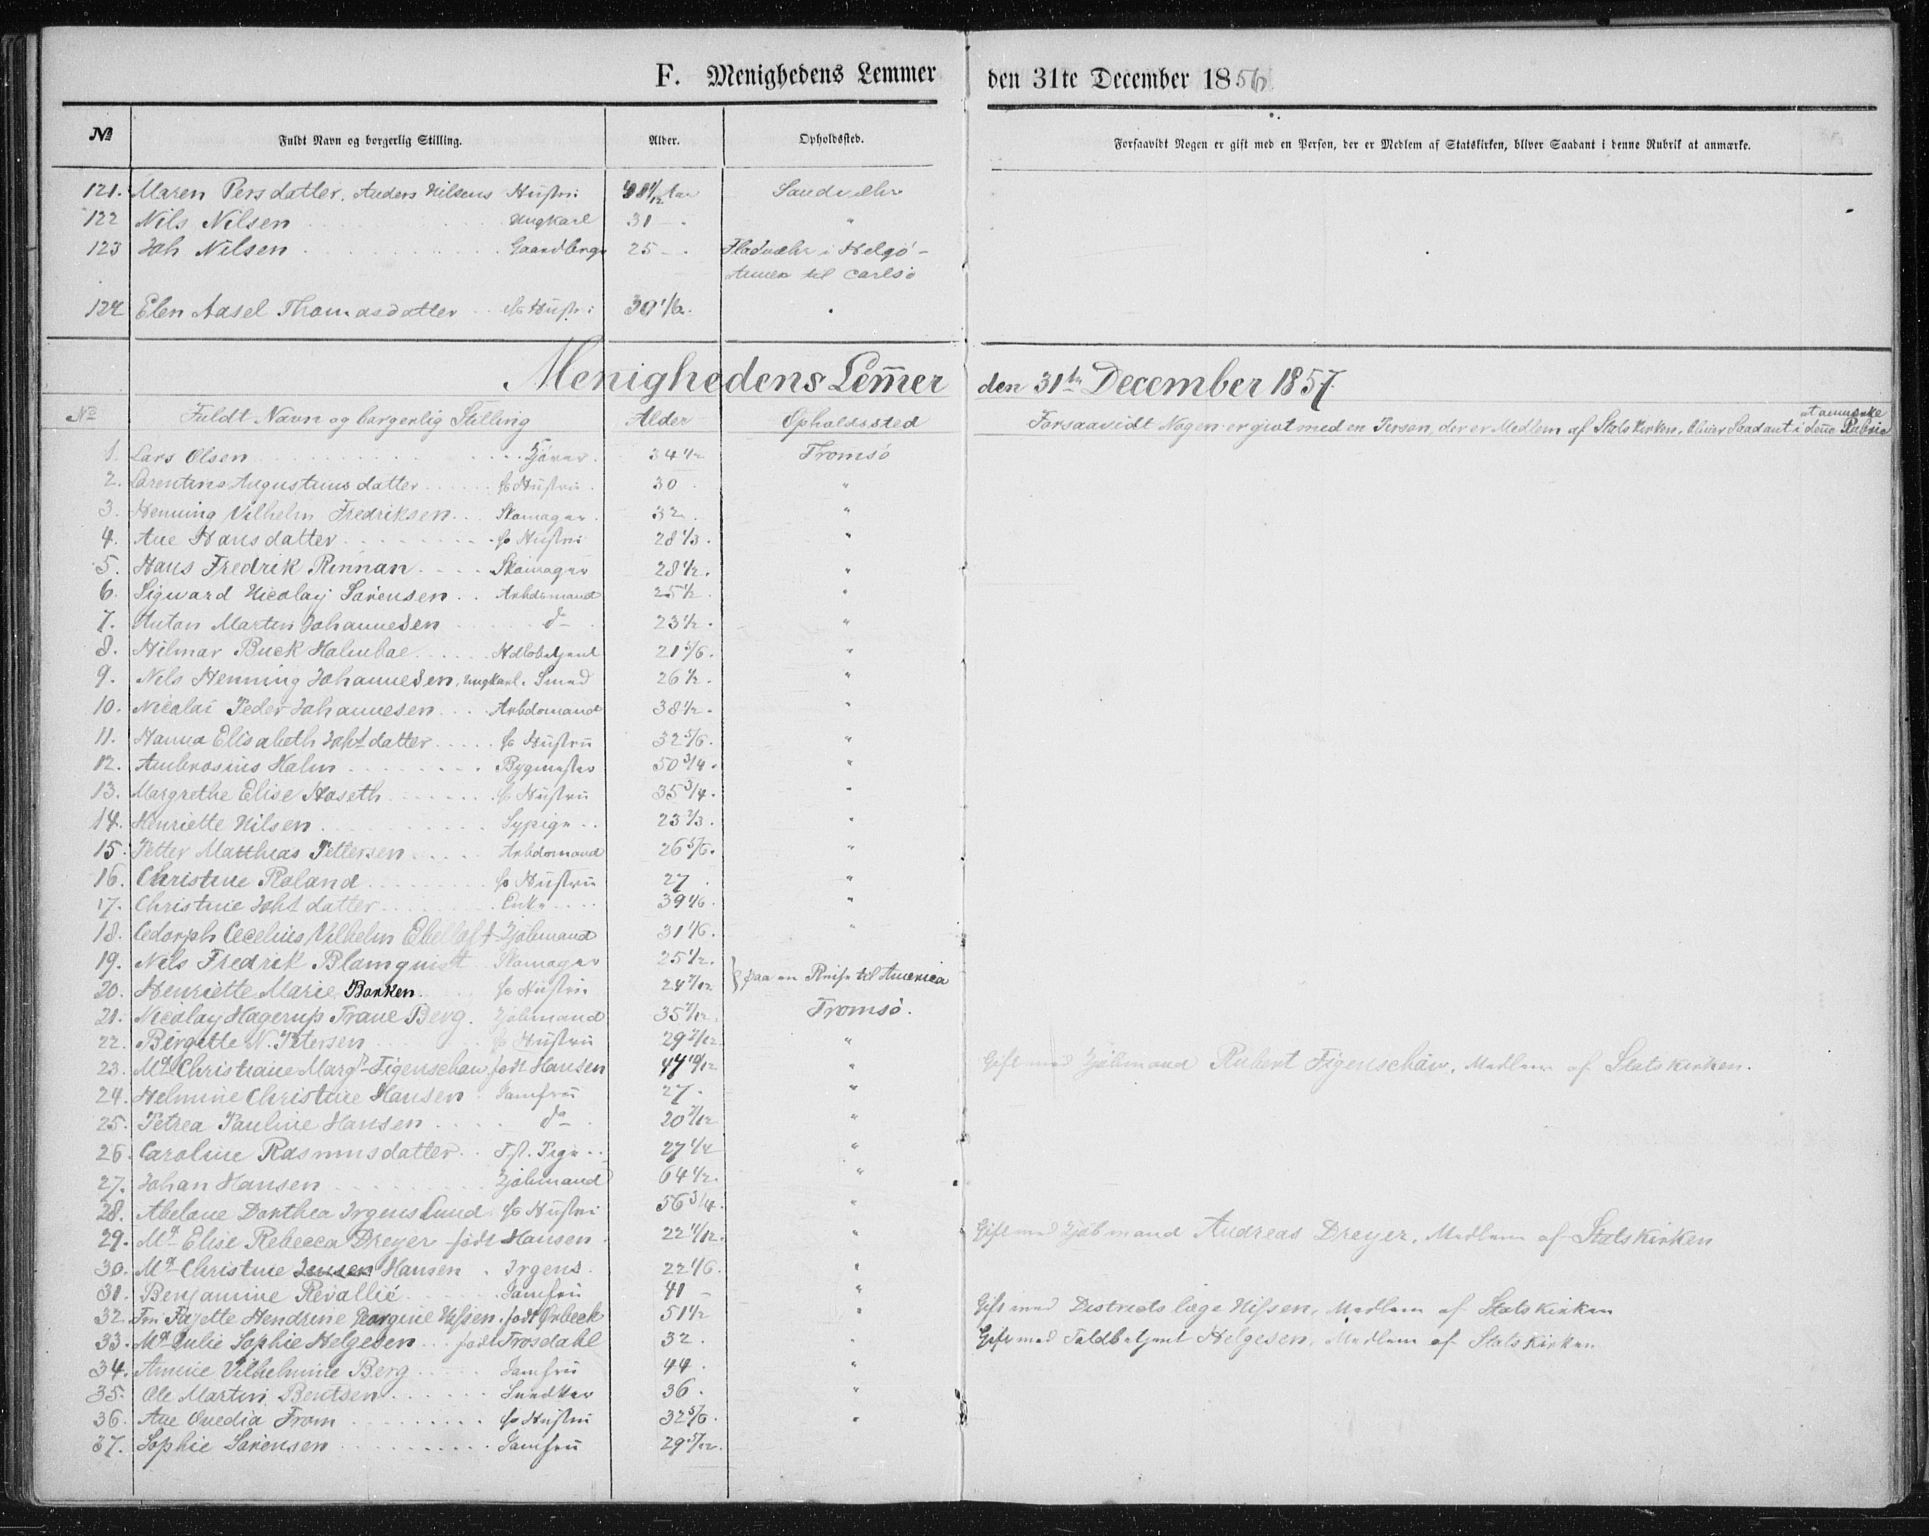 F. Menighedens Lemmer den 31te December 1856
No Fuldt Navn og borgerlig Stilling. Alder. Opholdssted. Forsaavidt Nogen er gift med en Person, der er Medlem af Statskirken, bliver Saadant i denne Rubrik at anmærke.
121. Maren Persdatter, Anders Nilsens Hustru
122 Nils Nilsen Ungkarl 31 - "
123 Joh Nilsen 25 - . i Helgø-
til Carlsø
124 Elen Aasel Thomasdatter Hustru 30 1/2.
Menighedens Lem̄er den 31te December 1857.
No Fuldt Navn og borgerlig Stilling Alder Opholdssted Forsaavidt Nogen er givt med en Person, der er Medlem af Statskirken, bliver Saadant i denne Rubric at anmærke
1. Lars Olsen 34 1/2 Tromsø
2. Lorentine Augustinusdatter Hustru 30 . "
3. Henning Vilhelm Fredriksen Skomager. 32. "
4. Ane Hansdatter Hustru 28 1/3. "
5. Hans Fredrik Rinnan Skomager 28 1/2. "
6. Sigvard Nicolay Sørensen Arbdsmand 25 1/2. "
7. Anton Martin Johannesen do 23 1/2. "
8. Hilmar Buck Holmboe 21 5/6. "
9. Nils Henning Johannesen, Ungkarl. Smed 26 1/2. "
10. Nicolai Peder Johannesen Arbdsmand 38 1/2. "
11. Hanna Elisabeth Johsdatter Hustru 32 5/6. "
12. Ambrosius Holm Bygmester 50 3/4. "
13. Margrethe Elise Hoseth Hustru 35 3/4. "
14. Henriette Nilsen Sypige 23 2/3. "
15. Petter Matthias Pettersen Arbdsmand 26 5/6. "
16. Christine Roland Hustru 27 . "
17. Christine Johsdatter Enke 39 1/6. "
18. Cecelius Vilhelm Ebeltoft Kjøbmand 31 1/6. "
19. Nils Fredrik Blomquist Skomager 25 1/2.
} paa en Reise til America
20. Henriette Marie Borken Hustru 24 7/12
21. Nicolay Hagerup Trane Berg. Kjøbmand 35 7/12. Tromsø.
22. Birgitte N. Petersen Hustru 29 7/12 "
23. Md Christiane Margr Figenschau født Hansen 47 10/12 " Gift med Kjøbmand Rubert Figenschau, Medlem af Statskirken.
24. Helmine Christine Hansen Jomfru 27. "
25. Petrea Pauline Hansen do 20 7/12 "
26. Caroline Rasmusdatter Tjst. Pige 27 1/2 "
27. Johan Hansen Kjøbmand 64 1/2. "
28. Abelone Dorthea Irgens Lund Hustru 56 3/4. "
29. Md Elise Rebecca Dreyer født Hansen 22 1/12. " Gift med Kjøbmand Andreas Dreyer, Medlem af Statskirken
30. Md Christine Jensen Hansen . Irgens. 22 1/6. "
31. Benjamine Revallié Jomfru 41 - "
32. Fru Fayette Hendrine Georgine Nissen, født Ørbeck 51 1/2 " Gift med Districtslæge Nissen, Medlem af Statskirken
33. Md Julie Sophie Helgesen født Trosdahl 32. " Gift med Toldbetjent Helgesen, Medlem af Statskirken
34. Annine Vilhelmine Berg Jomfru 44. "
35. Ole Martin Bentsen Snedker 36. "
36. Ane Ovedia From Hustru 32 5/6. "
37. Sophie Sørensen Jomfru 29 5/12.